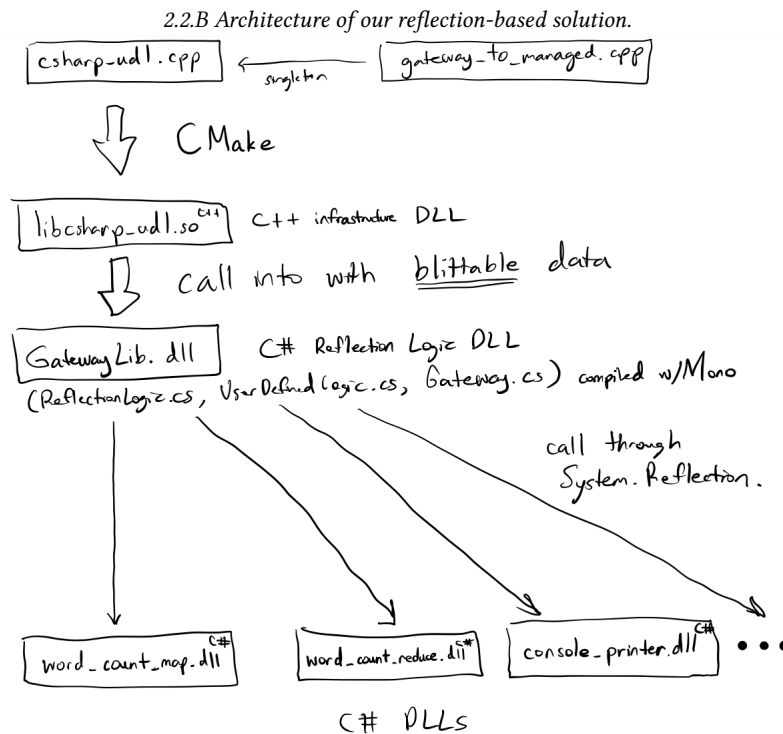 2.2.B Architecture of our reflection-based solution.
csharp-udl.cpp
singleton
gateway_to_managed.cpp
CMake
libcsharp_udl.so C++
C++ infrastructure DLL
call into with blittable data
GatewayLib.dll
C# Reflection Logic DLL
(ReflectionLogic.cs, UserDefinedLogic.cs, Gateway.cs) compiled w/Mono
call through
System.Reflection.
word_count_map.dll C#
word_count_reduce.dll C#
console_printer.dll C#
C# DLLs